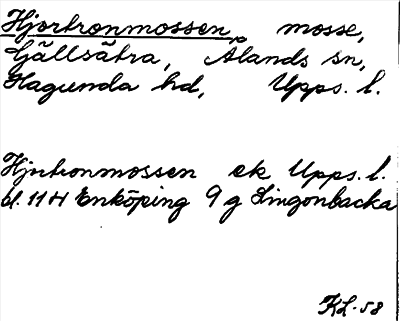 Hjortronmossen, mosse,
Gällsätra, Ålands sn,
Hagunda hd, Upps. l.
Hjortronmossen ek Upps. l.
bl. 11 H Enköping 9 g Lingonbacka
KL-58